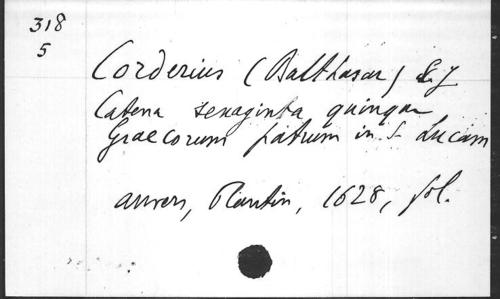 318
5
Corderius (Balthasar) S.J
Catena sexaginta quinque
Graecorum patrum in S. Lucam
anvers, Plantin, 1628, fol.